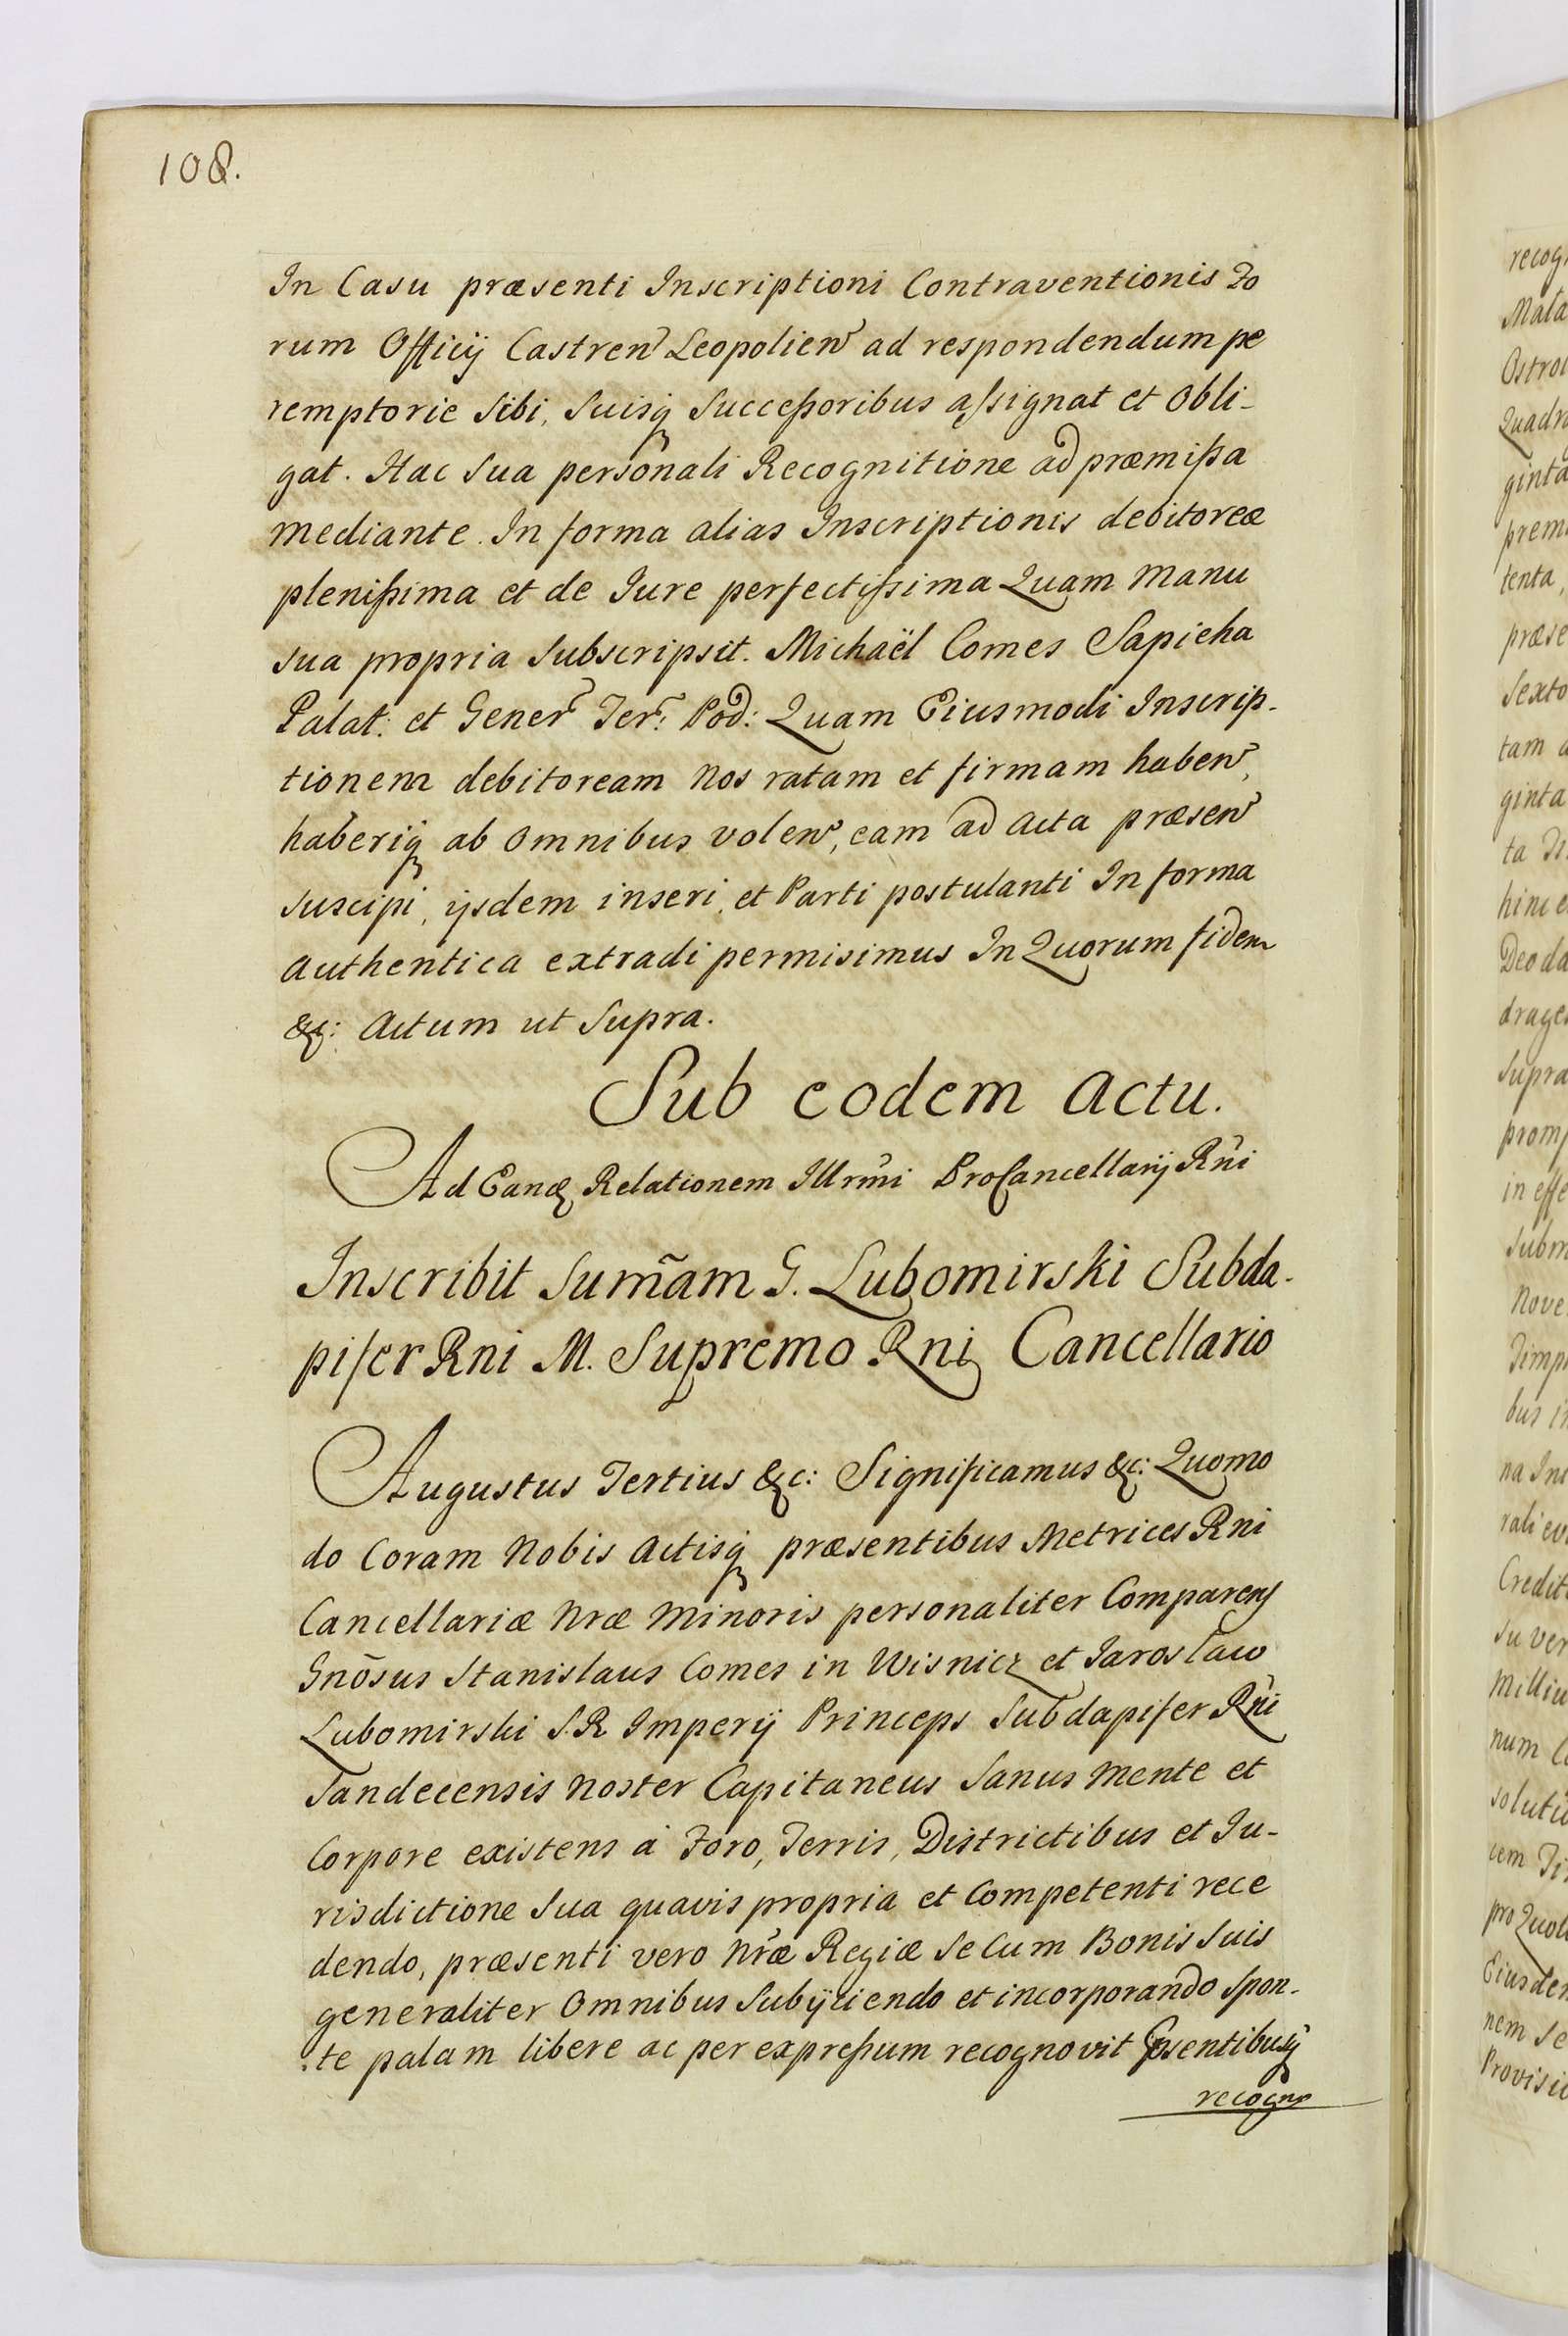 108.
In Casu præsenti Inscriptioni Contraventionis Fo
rum Officij Castren Leopolien ad respondendum pe
remptorie sibi, suisq successoribus assignat et obli-
gat. Hac sua personali Recognitione ad præmissa
mediante. In forma alias Inscriptionis debitoreæ
plenissima et de Jure perfectissima Quam Manu
sua propria subscripsit. Michaël Comes Sapieha
Palat: et Gener Ter: Pod: Quam Eiusmodi Inscrip-
tionem debitoream Nos ratam et firmam haben,
haberiq ab omnibus volen, eam ad Acta præsen
suscipi, ijsdem inseri, et Parti postulanti In forma
authentica extradi permisimus In Quorum fidem
&c: Actum ut supra.
Sub eodem actu.
Ad Eandem Relationem Illrmi ProCancellarij Rni
Inscribit sum̃am G. Lubomirski Subda-
pifer Rni M. Supremo Rni Cancellario
Augustus Tertius &c: Significamus &c: Quomo
do Coram Nobis Actisq præsentibus Metrices Rni
Cancellariæ Nræ Minoris personaliter Comparens
Gnõsus Stanislaus Comes in Wisnicz et Jaroslaw
Lubomirski S.R Imperij Princeps Subdapifer Rni
Sandecensis Noster Capitaneus sanus Mente et
Corpore existens à Foro, Terris, Districtibus et Ju-
risdictione sua quavis propria et Competenti rece
dendo, præsenti vero Nræ Regiæ se Cum Bonis suis
generaliter Omnibus subijciendo et incorporando spon-
te palam libere ac per expressum recognovit Præsentibusq
recogno
recog
Mata
Quadra
ginta
tenta,
præse
sexto
tam
ginta
ta
Deo da
drages
supra
in effe
subm
Nove
bus
Credit
su ver
Milliu
num
soluti
cem
pro Quol
Eiusdem
nem se
Provisi